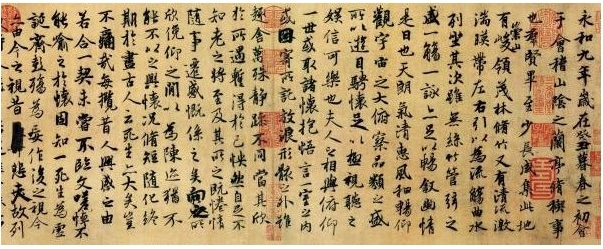 永和九年歲在癸丑暮春之初會
于會稽山陰之蘭亭脩稧事
也羣賢畢至少長咸集此地
有崇山峻領茂林脩竹又有清流激
湍暎帶左右引以為流觴曲水
列坐其次雖無絲竹管弦之
盛一觴一詠亦足以暢敘幽情
是日也天朗氣清惠風和暢仰
觀宇宙之大俯察品類之盛
所以遊目騁懷足以極視聽之
娛信可樂也夫人之相與俯仰
一世或取諸懷抱悟言一室之內
或因寄所託放浪形骸之外雖
趣舍萬殊靜躁不同當其欣
於所遇暫得於己怏然自足不
知老之將至及其所之既惓情
隨事遷感慨係之矣向之所
欣俛仰之閒以為陳迹猶不
能不以之興懷況脩短隨化終
期於盡古人云死生亦大矣豈
不痛哉每攬昔人興感之由
若合一契未嘗不臨文嗟悼不
能喻之於懷固知一死生為虛
誕齊彭殤為妄作後之視今
亦由今之視昔悲夫故列